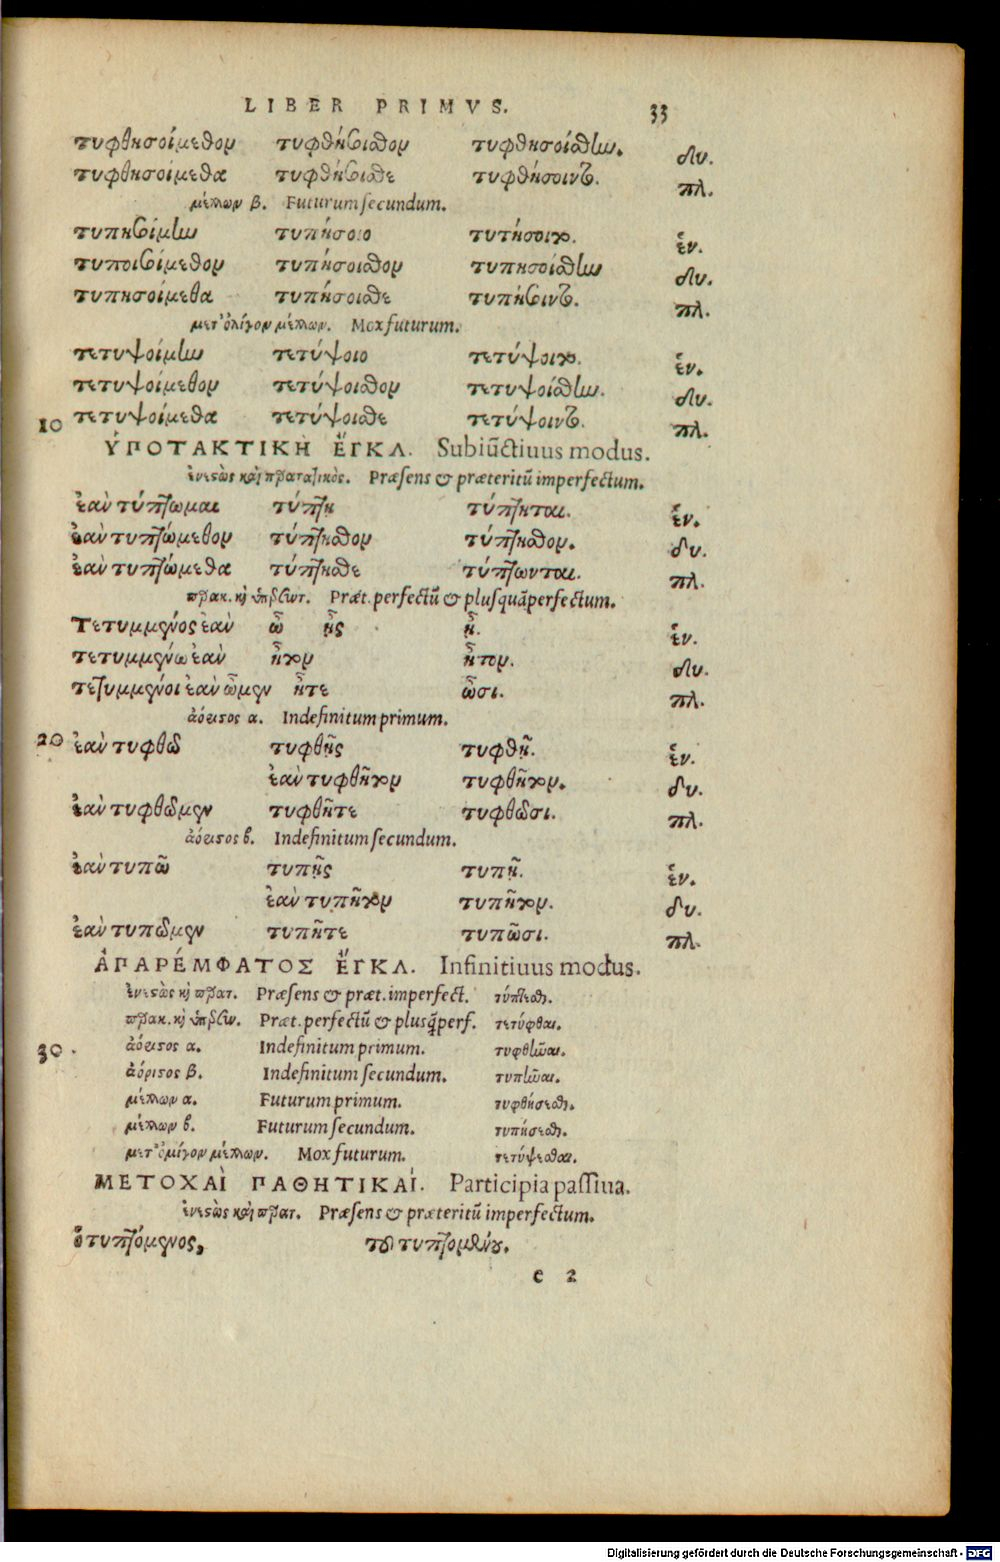 LIBER PRIMVS. 33
τυφθησοίμεθον τυφθήσοισθον τυφθησοίσθην. δυ.
τυφθησοίμεθα τυφθήσοισθε τυφθήσοιντο. πλ.
μέλλων β. Futurum secundum.
τυπησοίμην τυπήσοιο τυτήσοιτο. ἑν.
τυποισοίμεθον τυπήσοισθον τυπησοίσθην δυ.
τυπησοίμεθα τυπήσοισθε τυπήσοιντο. πλ.
μετ' ὀλίγον μέλλων. Mox futurum.
τετυψοίμην τετύψοιο τετύψοιτο. ἑν.
τετυψοίμεθον τετύψοισθον τετυψοίσθην. δυ.
10 τετυψοίμεθα τετύψοισθε τετύψοιντο. πλ.
ὙΠΟΤΑΚΤΙΚῊ ἜΓΚΛ. Subiūctiuus modus.
ἐνεστὼς καὶ παρατατικὸς. Præsens & præteritū imperfectum.
ἐὰν τύπτωμαι τύπτη τύπτηται. ἑν.
ἐὰν τυπτώμεθον τύπτησθον τύπτησθον. δυ.
ἐὰν τυπτώμεθα τύπτησθε τύπτωνται. πλ.
παρακ. καὶ ὑπερσυντ. Præt. perfectū & plusquāperfectum.
Τετυμμένος ἐὰν ὦ ᾖς ᾖ. ἑν.
τετυμμένω ἐὰν ἦτον ἦτον. δυ.
τετυμμένοι ἐὰν ὦμεν ἦτε ὦσι. πλ.
ἀόριστος α. Indefinitum primum.
20 ἐὰν τυφθῶ τυφθῇς τυφθῇ. ἑν.
ἐὰν τυφθῆτον τυφθῆτον. δυ.
ἐὰν τυφθῶμεν τυφθῆτε τυφθῶσι. πλ.
ἀόριστος β. Indefinitum secundum.
ἐὰν τυπῶ τυπῇς τυπῇ. ἑν.
ἐὰν τυπῆτον τυπῆτον. δυ.
ἐὰν τυπῶμεν τυπῆτε τυπῶσι. πλ.
ἈΠΑΡΈΜΦΑΤΟΣ ἜΓΚΛ. Infinitiuus modus.
ἐνεστὼς καὶ παρατ. Præsens & præt. imperfect. τύπτεσθαι.
παρακ. καὶ ὑπερσυν. Præt. perfectū & plusq̃perf. τετύφθαι.
30 ἀόριστος α. Indefinitum primum. τυφθῆναι.
ἀόριστος β. Indefinitum secundum. τυπῆναι.
μέλλων α. Futurum primum. τυφθήσεσθαι.
μέλλων β. Futurum secundum. τυπήσεσθαι.
μετ' ὀμίγον μέλλων. Mox futurum. τετύψεσθαι.
ΜΕΤΟΧΑῚ ΠΑΘΗΤΙΚΑΊ. Participia passiua.
ἐνεστὼς καὶ παρατ. Præsens & præteritū imperfectum.
ὁ τυπτόμενος, τοῦ τυπτομένου.
e 2
Digitalisierung gefördert durch die Deutsche Forschungsgemeinschaft - DFG